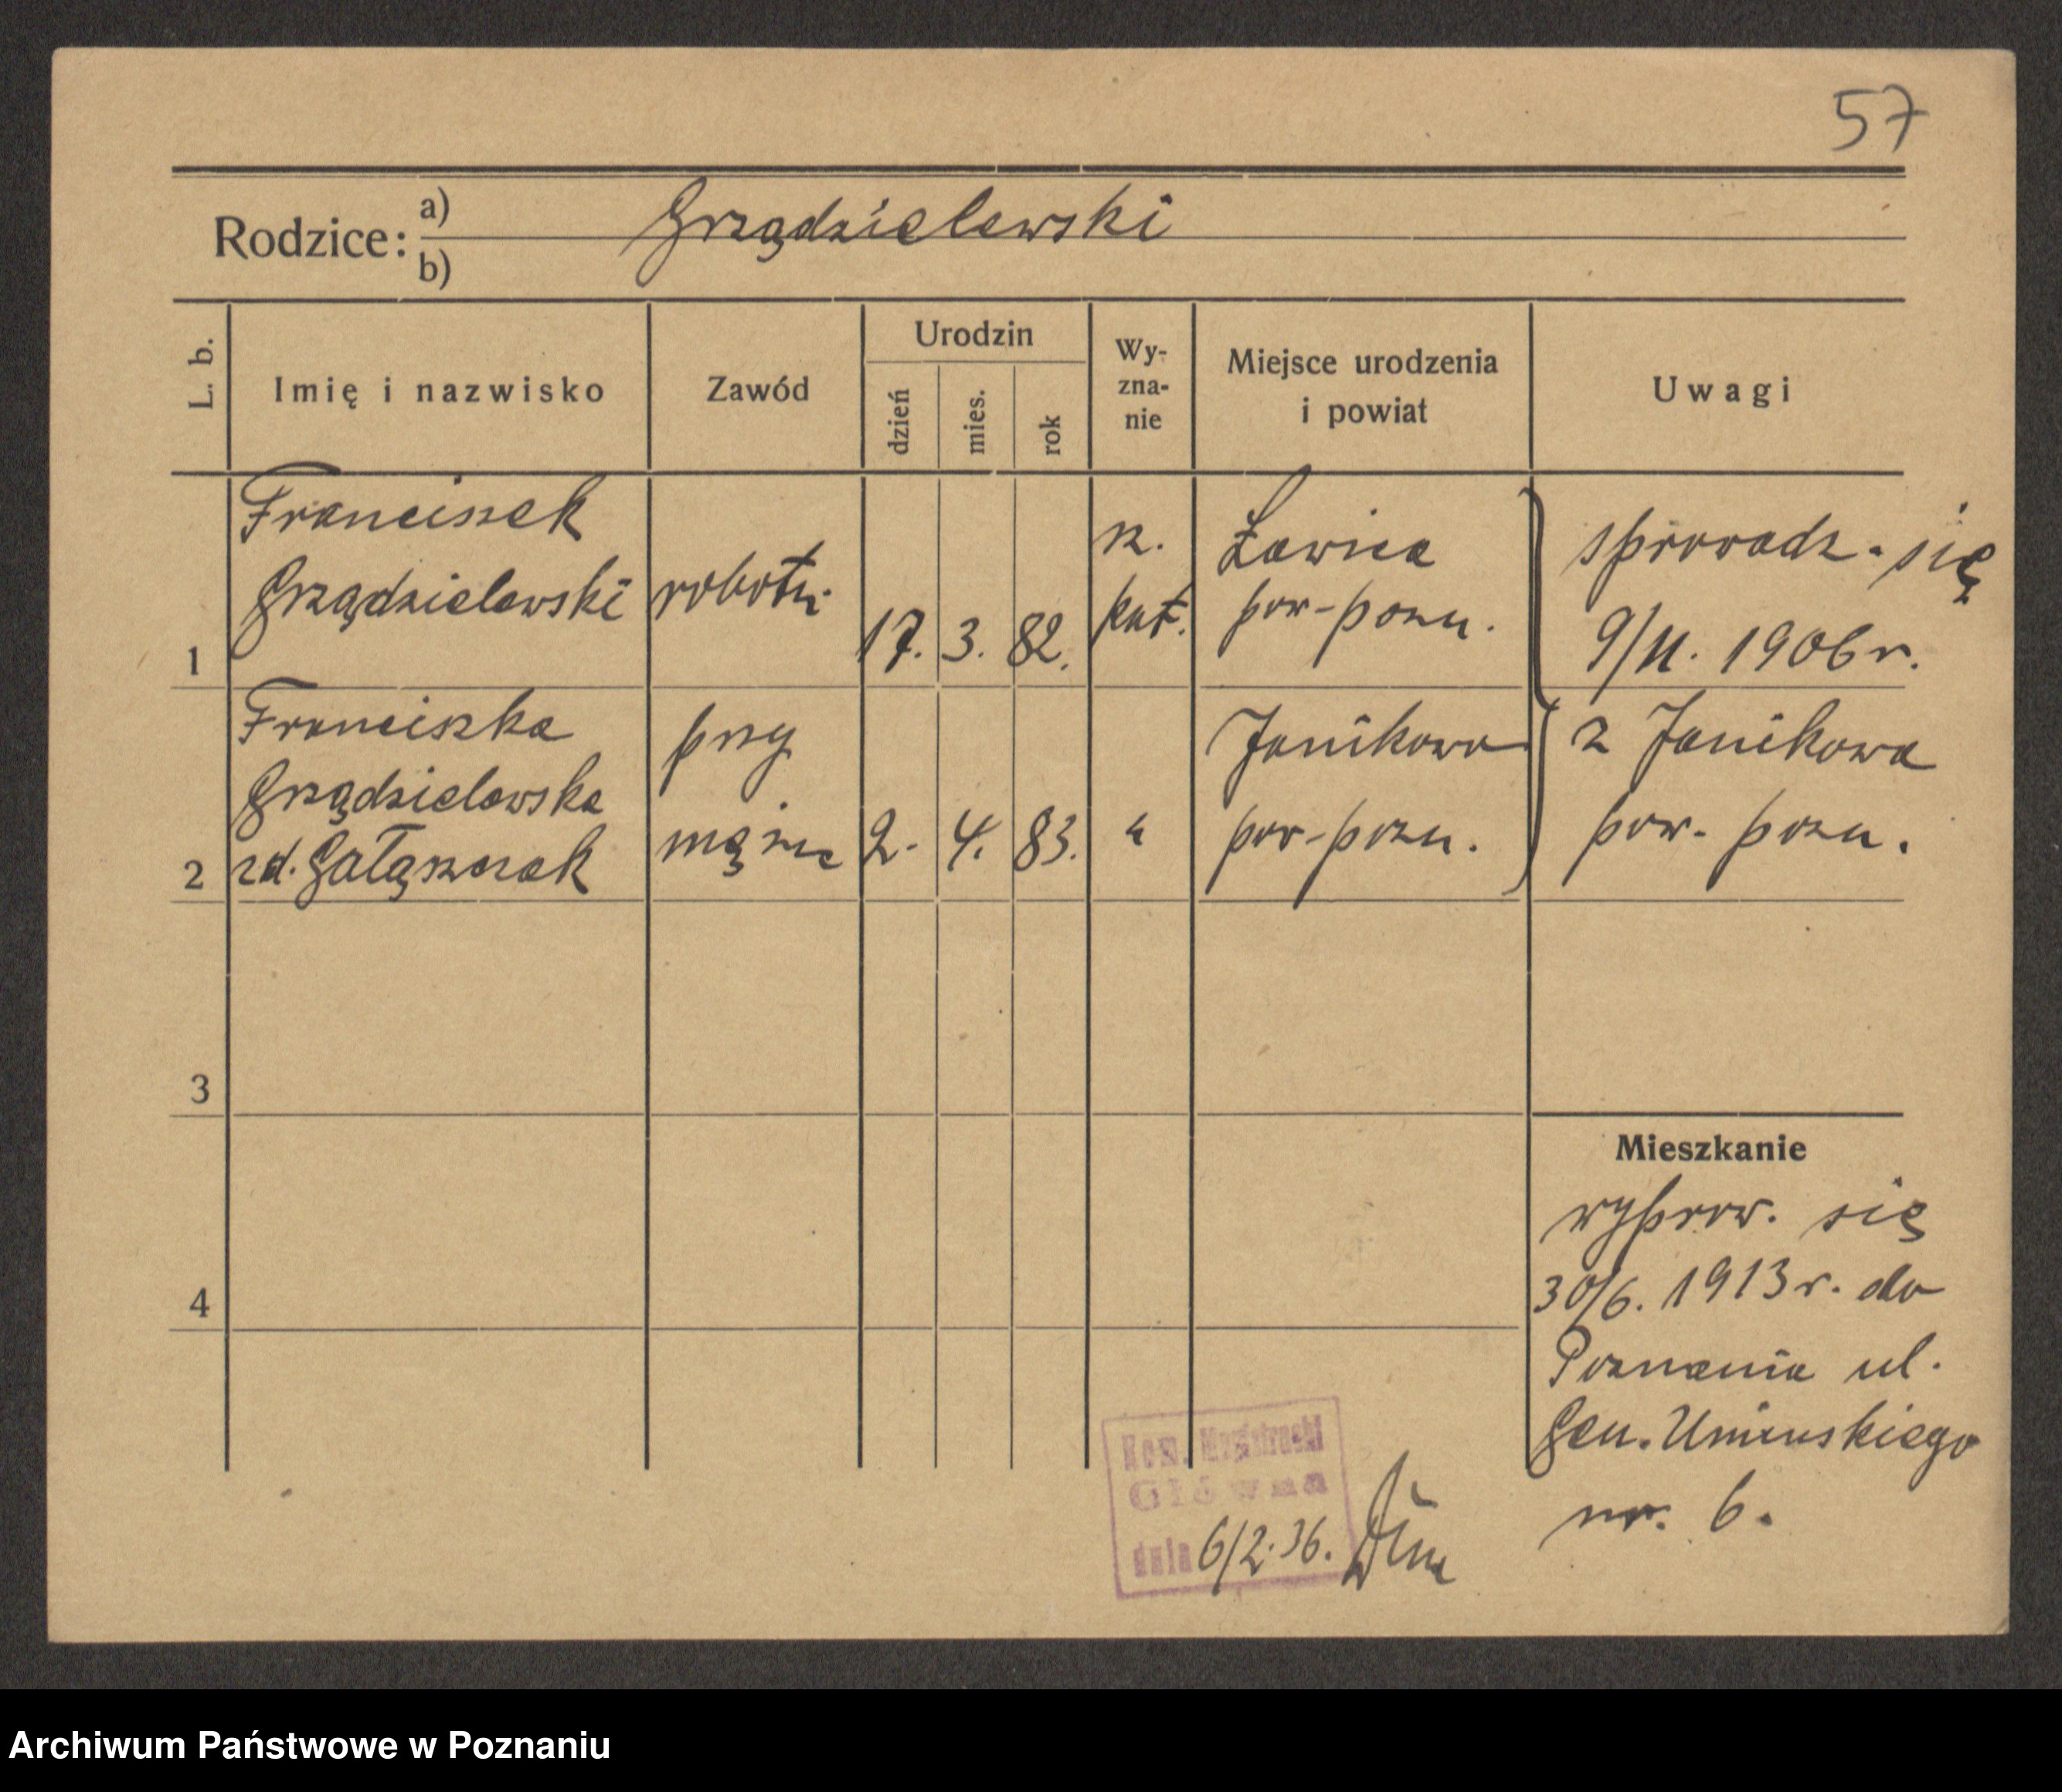 57
Rodzice: a) Grządzielewski
b)
L. b.
Imię i nazwisko
Zawód
Urodzin
dzień
mies.
rok
Wy-
zna-
nie
Miejsce urodzenia
i powiat
Uwagi
1
Franciszek
Grządzielewski
robotn.
17. 3. 82.
rz.
kat.
Ławica
pow-pozn.
sprowadz. się
9/11. 1906 r.
2
Franciszka
Grządzielewska
zd. Gałąszczak
przy
mężu
2. 4. 83.
"
Janikowo
pow-pozn.
z Janikowa
pow. pozn.
3
4
Mieszkanie
wyprow. się
30/6. 1913 r. do
Poznania ul.
Gen. Umińskiego
nr. 6.
Kom. Magistracki
Główna
dnia 6/2.36.
Archiwum Państwowe w Poznaniu